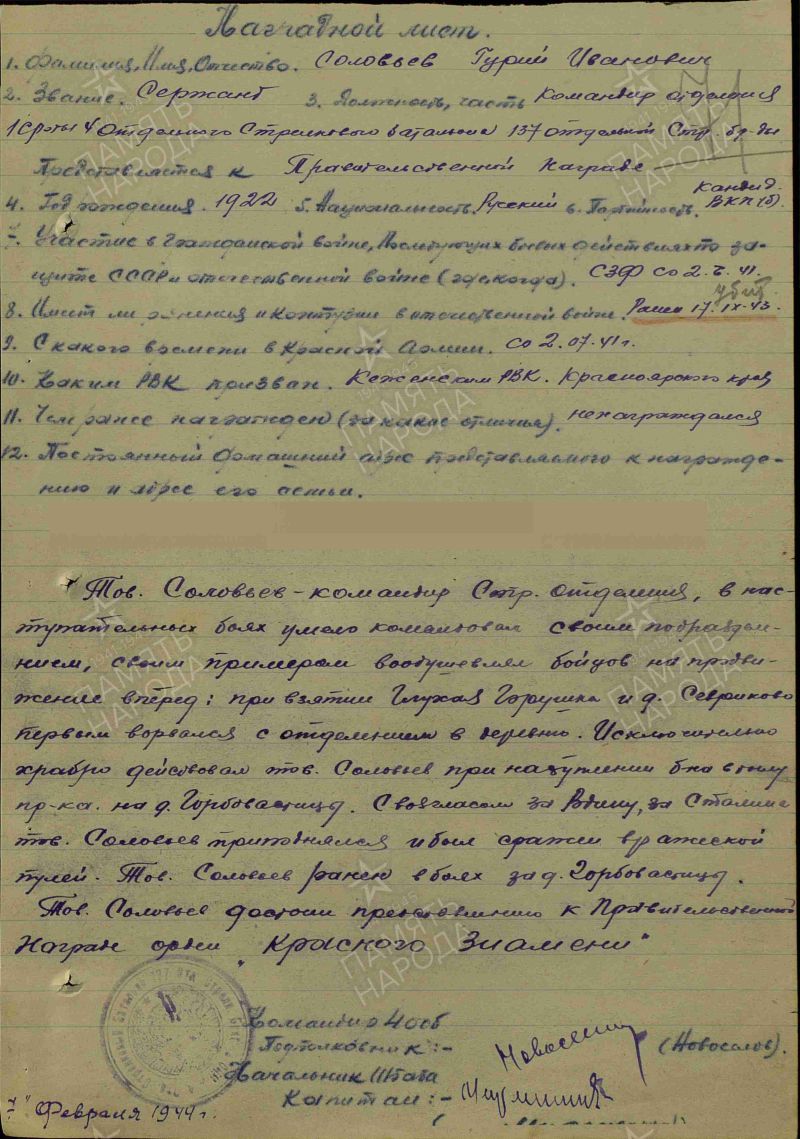 Наградной лист.
1. Фамилия, Имя, Отчество. Соловьев Гурий Иванович
2. Звание. Сержант 3. Должность, часть Командир отделения
1 роты 4 отдельного Стрелкового батальона 137 отдельной Стр. бр-ды
Представляется к Правительственной Награде
4. Год рождения. 1922 5. Национальность. Русский 6. Партийность. Кандид. ВКП(б)
7. Участие в Гражданской войне, последующих боевых действиях по за-
щите СССР и отечественной войне (где когда). СЗФ со 2. 41.
убит
8. Имеет ли ранения и контузии в отечественной войне. Ранен 17. IX-43.
9. С какого времени в Красной Армии. со 2.07.41 г.
10. Каким РВК призван. Кеженским РВК. Красноярского края
11. Чем ранее награжден (за какие отличья). не награждался
12. Постоянный домашний адрес представляемого к награжде-
нию и адрес его семьи.
Тов. Соловьев - командир Стр. отделения, в нас-
тупательных боях умело командовал своим подразделе-
нием, своим примером воодушевлял бойцов на продви-
жение вперед: при взятии Глухая Горушка и д. Севриково
первым ворвался с отделением в деревню. Исключительно
храбро действовал тов. Соловьев при наступлении б-на в тылу
пр-ка. на д. Горбовастицы. С возгласом за Родину, за Сталина
тов. Соловьев приподнялся и был сражен вражеской
пулей. Тов. Соловьев ранен в боях за д. Горбовастицы.
Тов. Соловьев достоин представлению к Правительственной
Награде орден "Красного Знамени"
Командир 4 осб
Подполковник:- (Новоселов).
Начальник Штаба
Капитан:-
"7" Февраля 1944 г.
ПАМЯТЬ НАРОДА